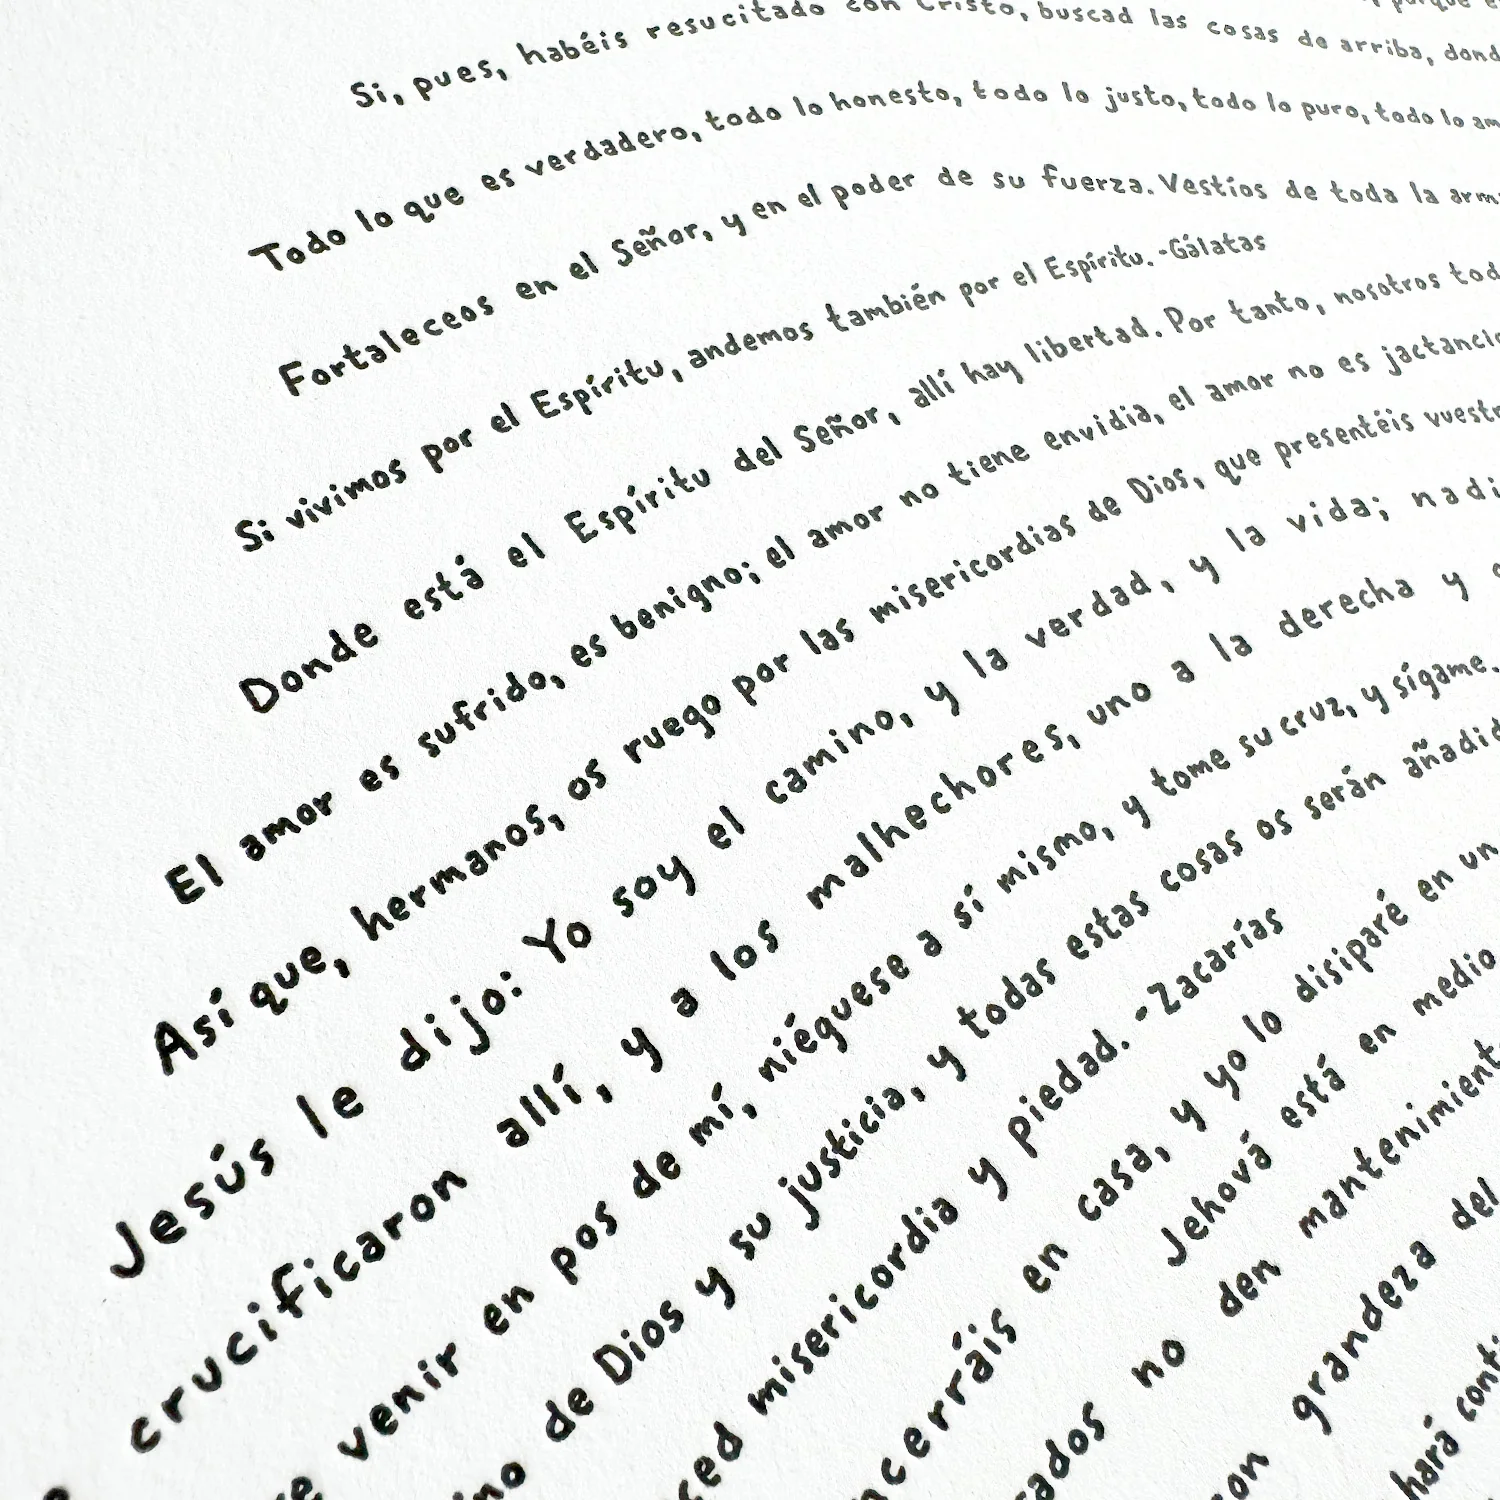 porque
Si, pues, habéis resucitado con Cristo, buscad las cosas de arriba, dond
Todo lo que es verdadero, todo lo honesto, todo lo justo, todo lo puro, todo lo am
Fortaleceos en el Señor, y en el poder de su fuerza. Vestíos de toda la arm
Si vivimos por el Espíritu, andemos también por el Espíritu. -Gálatas
Donde está el Espíritu del Señor, allí hay libertad. Por tanto, nosotros tod
El amor es sufrido, es benigno; el amor no tiene envidia, el amor no es jactancio
Así que, hermanos, os ruego por las misericordias de Dios, que presentéis vuestr
Jesús le dijo: Yo soy el camino, y la verdad, y la vida; nadi
crucificaron allí, y a los malhechores, uno a la derecha y
venir en pos de mí, niéguese a sí mismo, y tome su cruz, y sígame.
ino de Dios y su justicia, y todas estas cosas os serán añadid
ced misericordia y piedad. -Zacarías
ncerráis en casa, y yo lo disiparé en un
Jehová está en medio
ados no den mantenimient
on grandeza del
hará conti